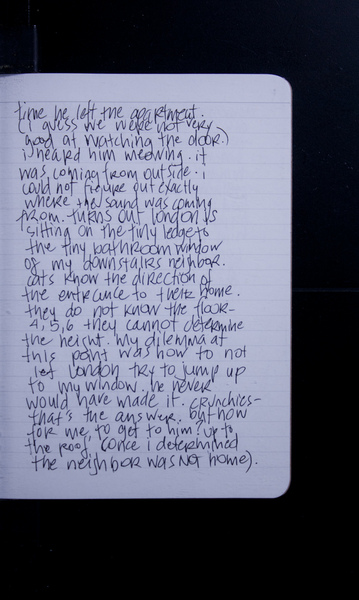 time he left the apartment.
(i guess we were not very
good at watching the door.)
i heard him meowing. it
was coming from outside. i
could not figure out exactly
where the sound was coming
from. turns out london is
sitting on the tiny ledge to
the tiny bathroom window
of my downstairs neighbor.
cats know the direction of
the entrance to their home.
they do not know the floor-
4,5,6 they cannot determine
the height. my dilemma at
this point was how to not
let london try to jump up
to my window. he never
would have made it. crunchies-
that's the answer. but how
for me to get to him? up to
the roof (once i determined
the neighbor was not home).